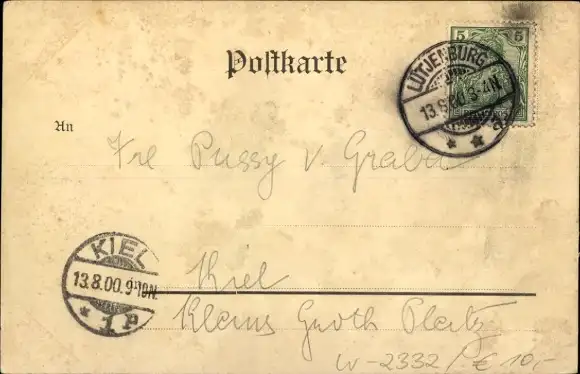 Postkarte
5 5
LÜTJENBURG
13.8.00.3-4N.
An
Frl Pussy v. Grabow
KIEL
13.8.00.9-10N.
* 1 P
Kiel
Klaus Groth Platz
W-2332/P. € 10,-